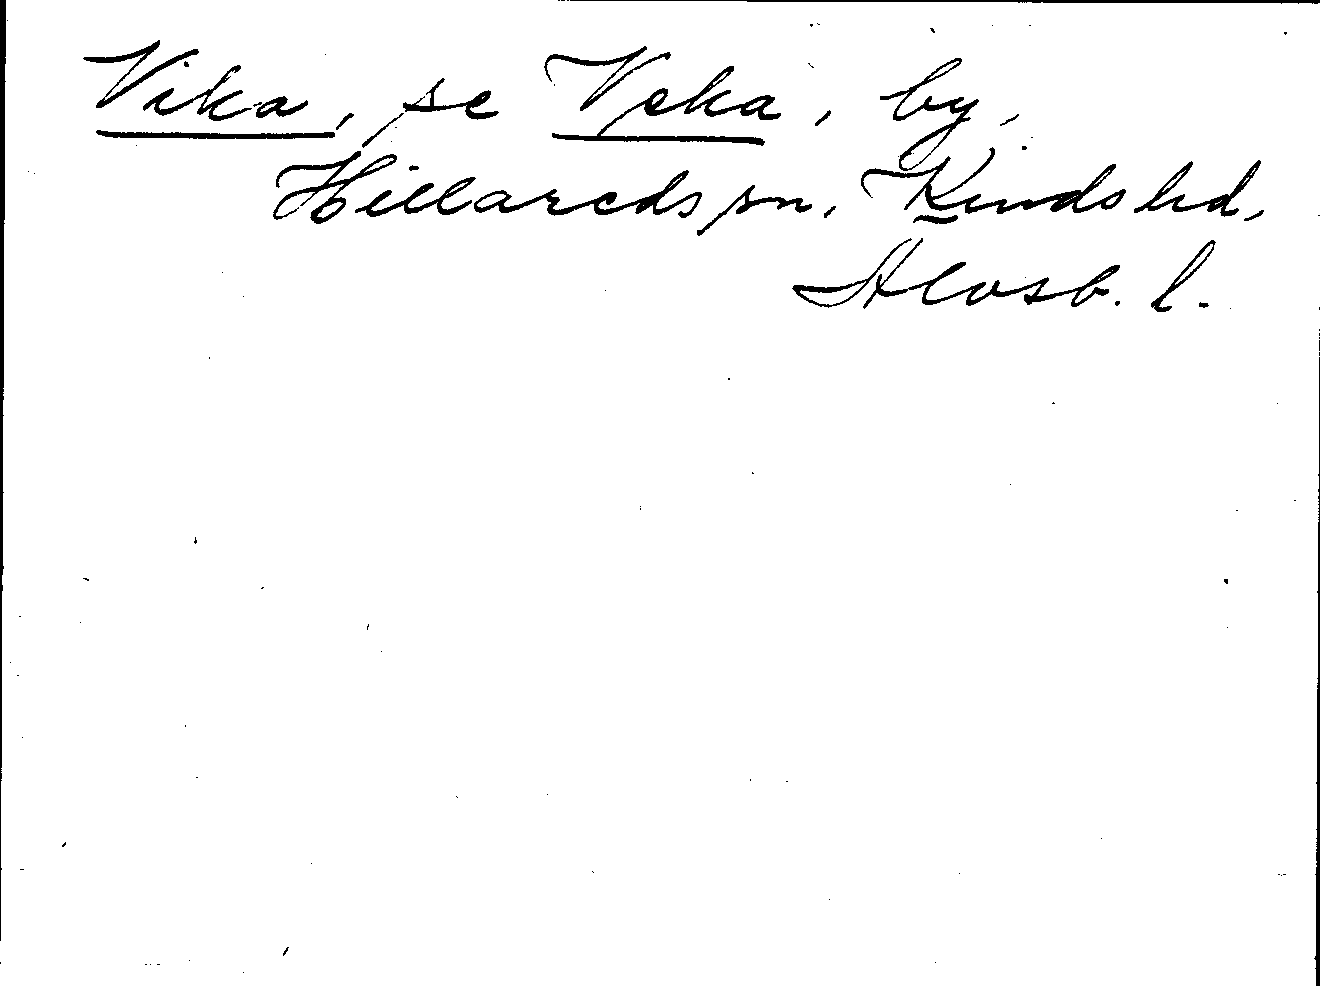 Vika, se Veka, by,
Hillareds sn, Kinds hd,
Älvsb. l.